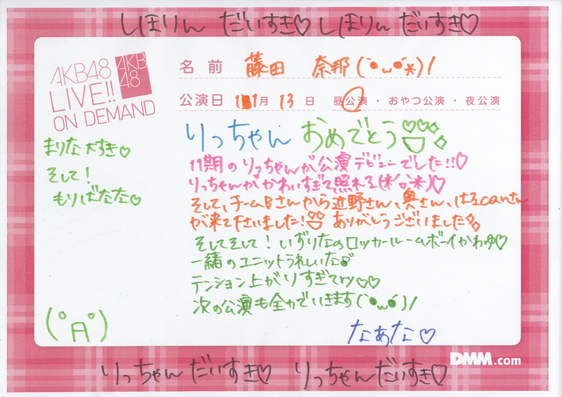 しほりん だいすき♡ しほりん だいすき♡
AKB48
LIVE!!
ON DEMAND
AKB
48
名前 藤田 奈那(●ω●*)/
公演日 11月 13日 昼公演・おやつ公演・夜公演
りっちゃん おめでとう
まりな大すき♡
そして!
もりばたな♡
11期のりっちゃんが公演デビューでした!!♡
りっちゃんがかわいすぎて照れる(*´○`*)♡
そして、チームBさんから近野さん、奥さん、はるcanさん
が来て下さいました! ありがとうございました
そしてそして! いずりなのロッカールームボーイかわゆ♡
一緒のユニットうれしいな♪
テンション上がりすぎてry♡♡
次の公演も全力でいきます(●ω●)/
(°A°)
なぁな♡
DMM.com
りっちゃんだいすき♡ りっちゃんだいすき♡